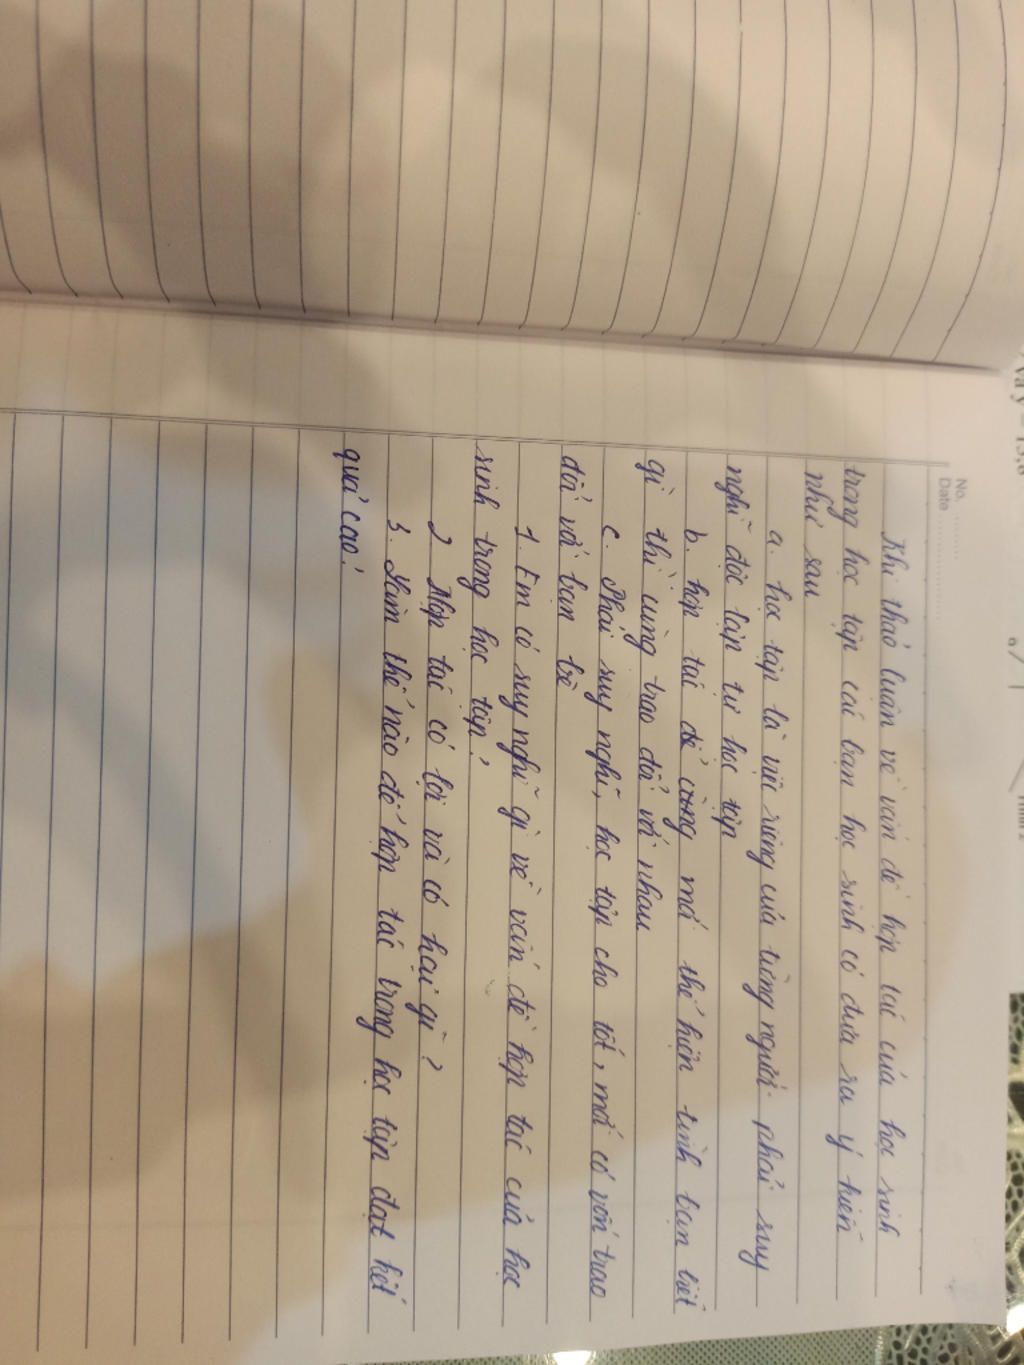 No.
Date
Khi thảo luận về vấn đề hợp tác của học sinh
trong học tập các bạn học sinh có đưa ra ý kiến
như sau
a. học tập là việc riêng của từng người. phải suy
nghĩ độc lập tự học tập
b. hợp tác để cùng mới thể hiện tình bạn biết
gì thì cùng trao đổi với nhau
c. Phải suy nghĩ, học tập cho tốt, mới có vốn trao
đổi với bạn bè
1. Em có suy nghĩ gì về vấn đề hợp tác của học
sinh trong học tập?
2 Hợp tác có lợi và có hại gì?
3. Làm thế nào để hợp tác trong học tập đạt kết
quả cao?